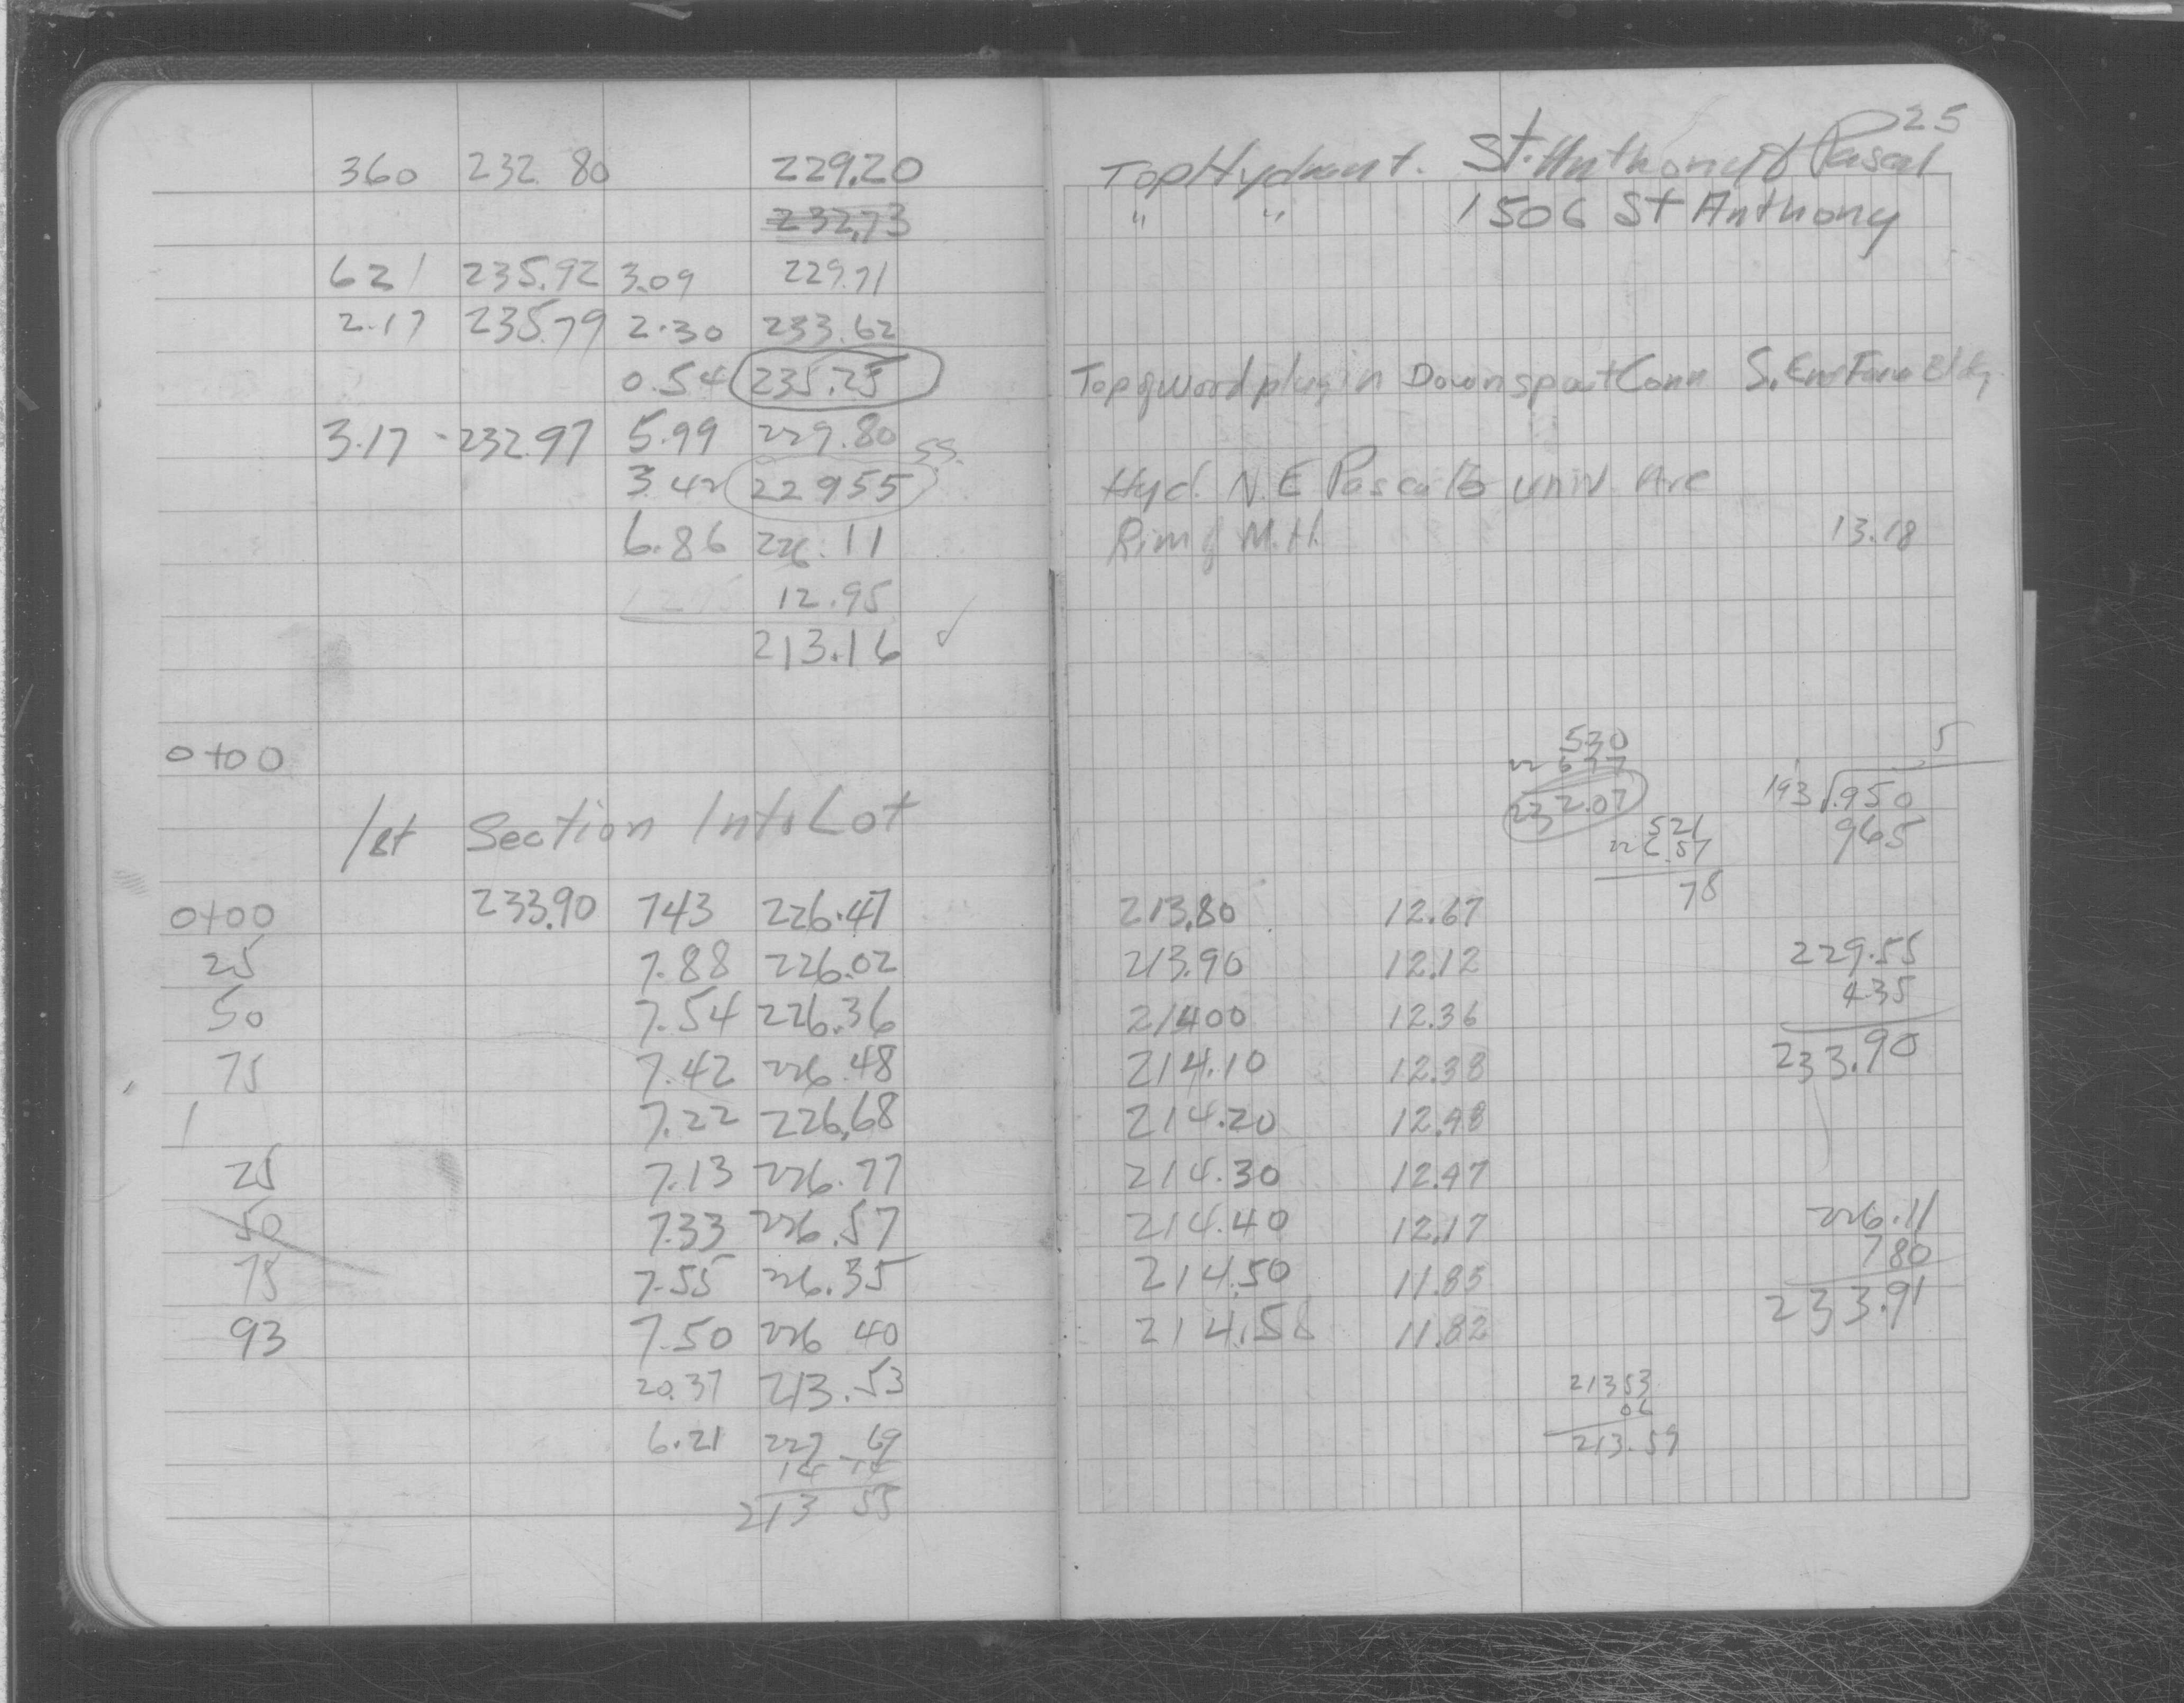 25
360 232.80 229.20 Top Hydrant. St. Anthony & Pascal
232.73 " " 1506 St Anthony
621 235.92 3.09 229.71
2.17 235.79 2.30 233.62
0.54 235.25 Top of wood plug in Downspout Conn S. End Bldg.
3.17 - 232.97 5.99 229.80
3.42 229 55 S.S. Hyd. N.E Pascal & Univ. Ave
6.86 226.11 Rim of M.H. 13.18
12.95 12.95
213.16 ✓
0+00
530
232.07
5
193 .950
965
521
226.57
78
1st Section Into Lot
0+00 233.90 743 226.47 213.80 12.67
25 7.88 226.02 213.90 12.12 229.55
50 7.54 226.36 21400 12.36 435
75 7.42 226.48 214.10 12.38 233.90
1 7.22 226.68 214.20 12.48
25 7.13 226.77 214.30 12.47
50 7.33 226.57 214.40 12.17 226.11
75 7.55 226.35 214.50 11.85 780
93 7.50 226 40 214.58 11.82 233.91
20.37 213.53 21353
06
6.21 227 69 213.59
14 14
213 55